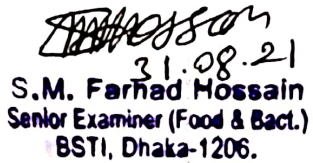 31.08.21
S.M. Farhad Hossain
Senior Examiner (Food & Bact.)
BSTI, Dhaka-1206.